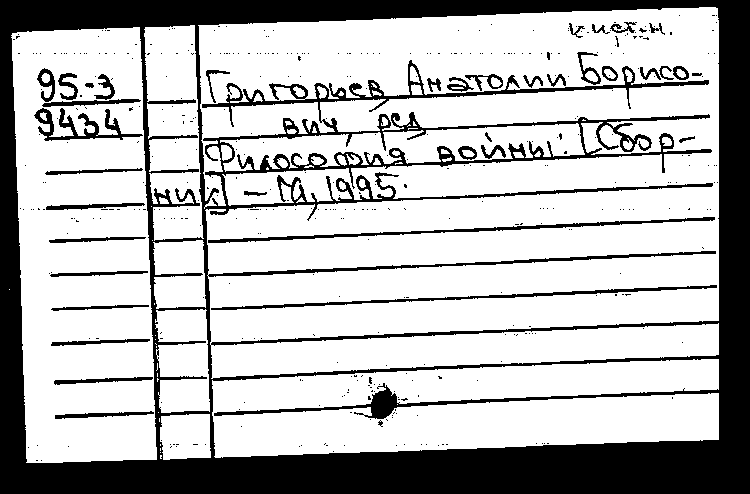 к ист.н.
95-3 Григорьев, Анатолий Борисо-
9434 вич, ред
Философия войны: [Сбор-
ник] - М, 1995.